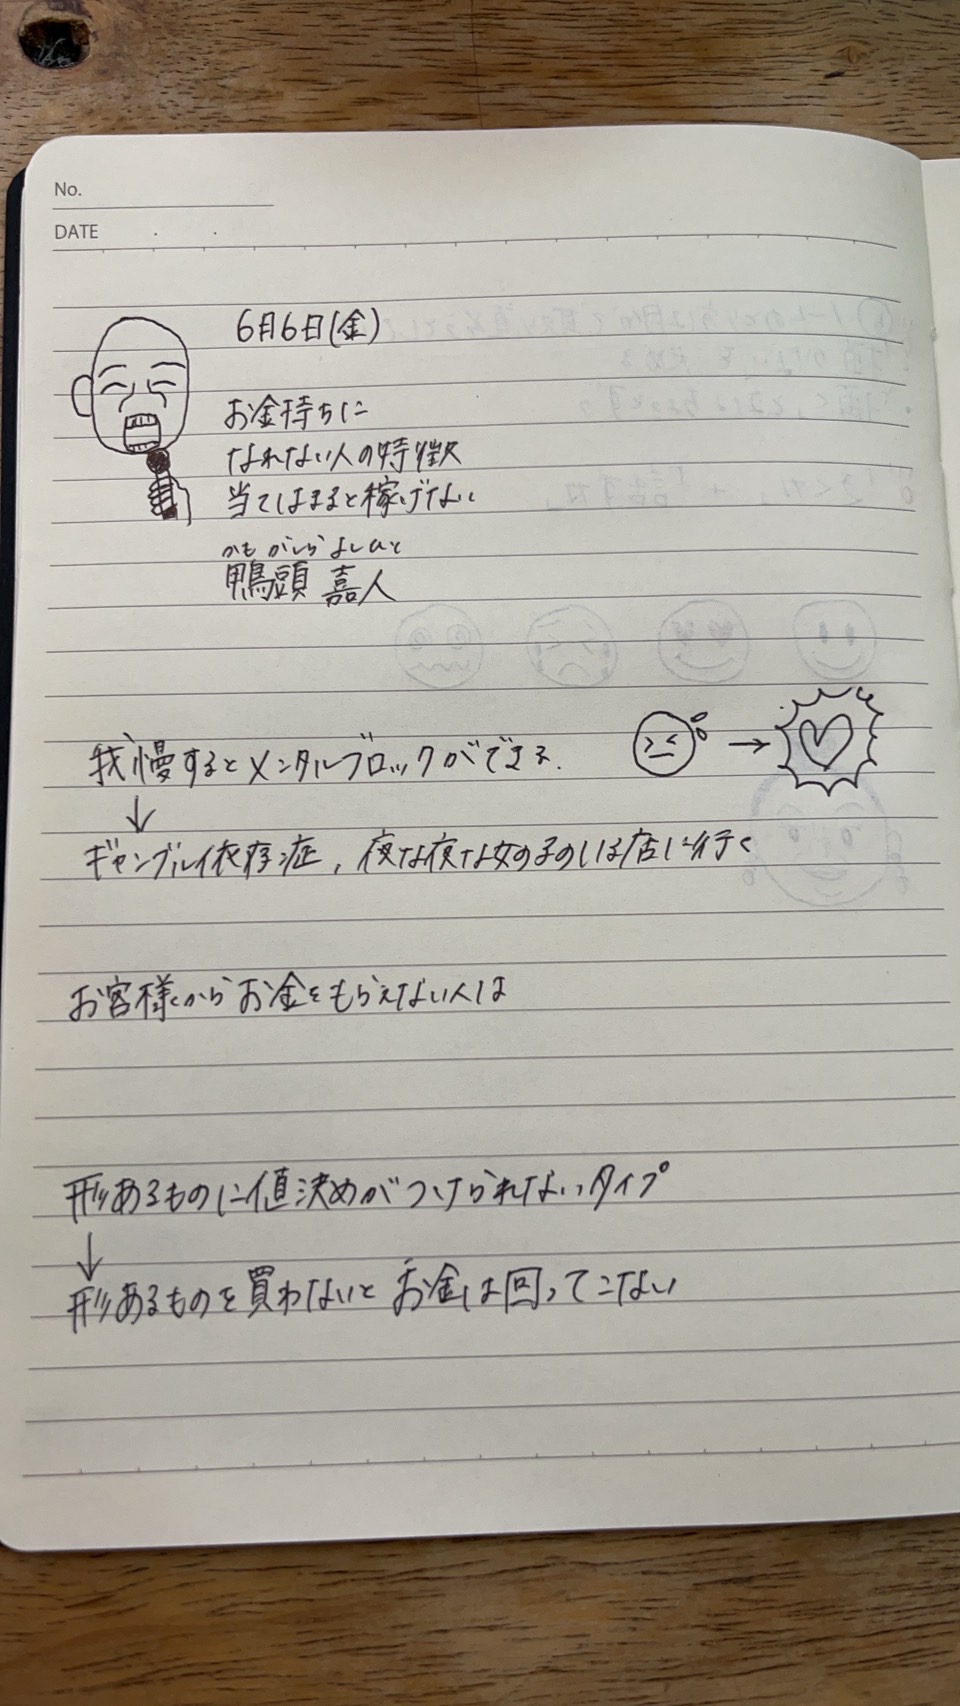 No.
DATE
6月6日(金)
お金持ちに
なれない人の特徴
当てはまると稼げない
かも がしら よしひと
鴨頭 嘉人
我慢するとメンタルブロックができる.
↓
ギャンブル依存症, 夜な夜な女の子のいる店に行く
お客様からお金をもらえない人は
形あるものに値決めがつけられないタイプ
↓
形あるものを買わないとお金は回ってこない